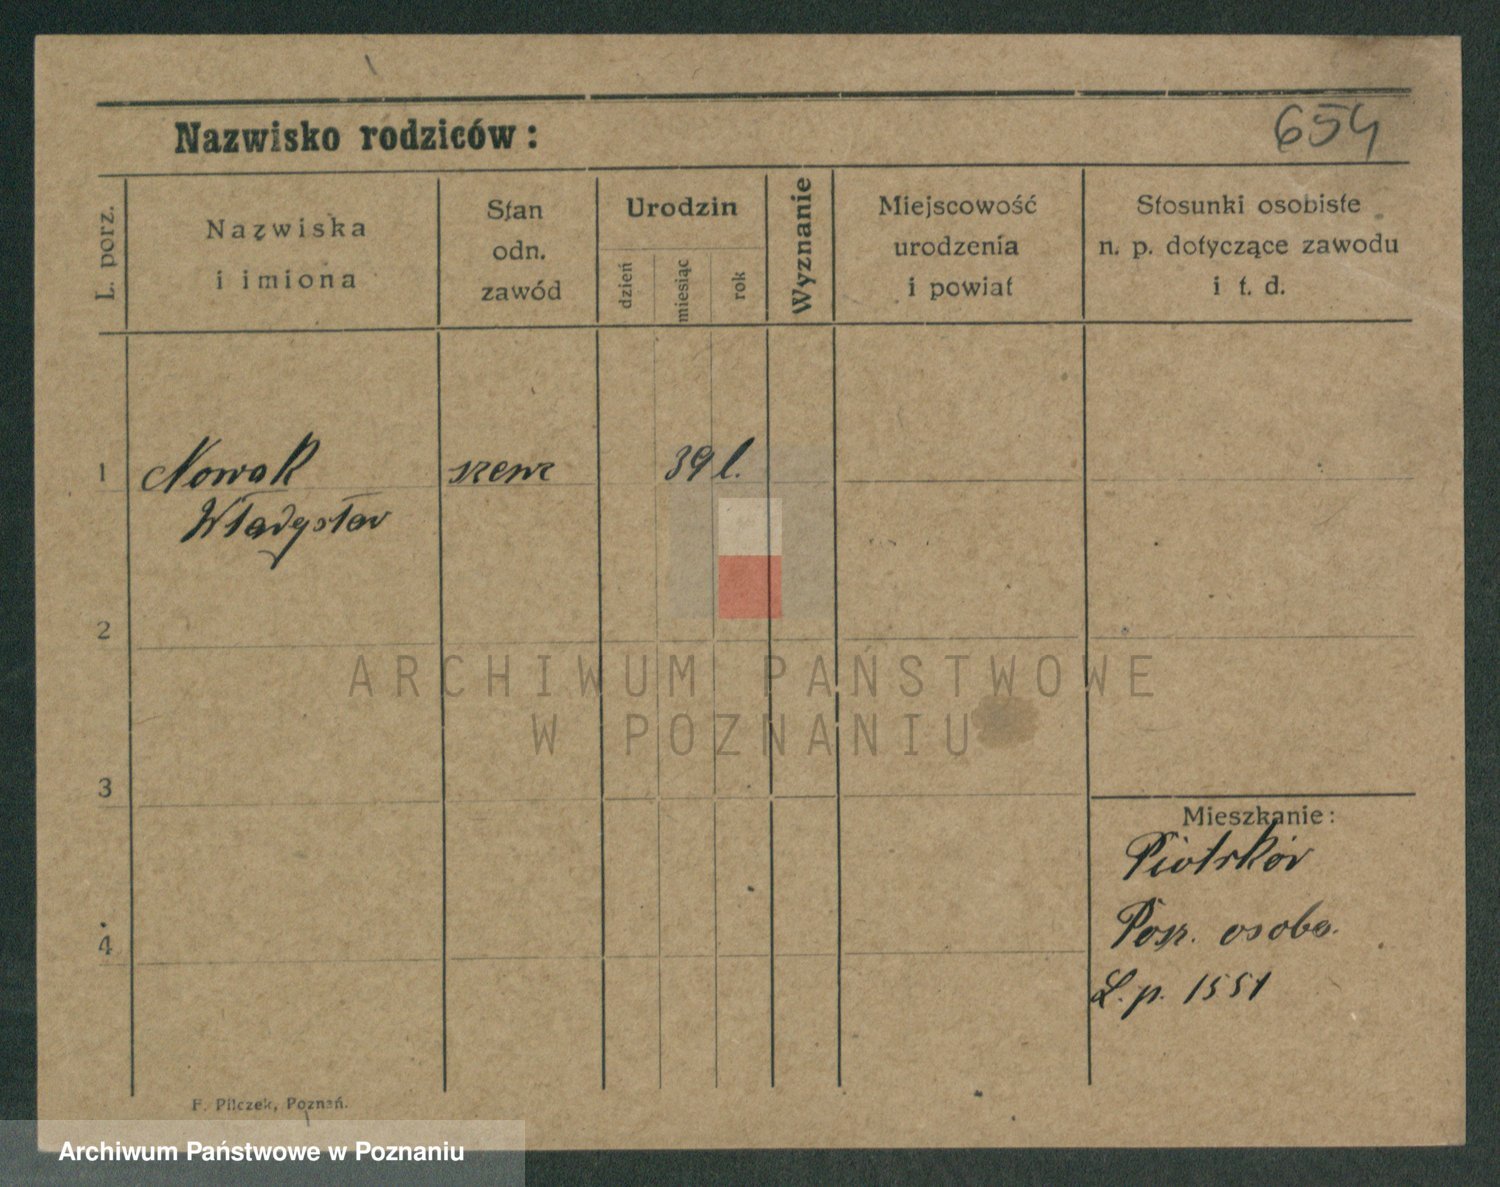 654
Nazwisko rodziców:
L. porz.
Nazwiska
i imiona
Stan
odn.
zawód
Urodzin
dzień
miesiąc
rok
Wyznanie
Miejscowość
urodzenia
i powiat
Stosunki osobiste
n. p. dotyczące zawodu
i t. d.
1
Nowak
Władysław
szewc
39 l.
2
ARCHIWUM PAŃSTWOWE
W POZNANIU
3
Mieszkanie:
Piotrków
osoba.
L. p. 1551
4
F. Pilczek, Poznań.
Archiwum Państwowe w Poznaniu